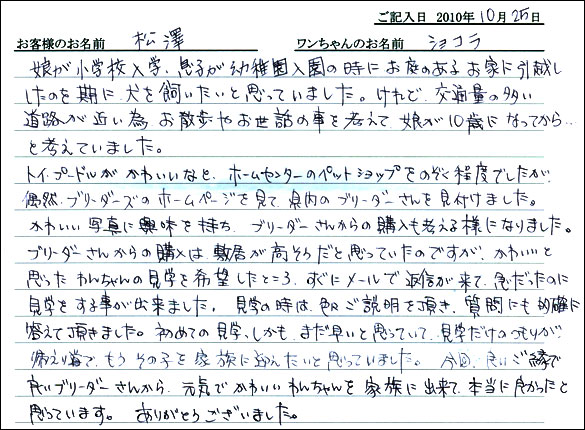 ご記入日 2010年10月25日
お客様のお名前 松澤 ワンちゃんのお名前 ショコラ
娘が小学校入学、息子が幼稚園入園の時にお庭のあるお家に引越し
したのを期に、犬を飼いたいと思っていました。けれど、交通量の多い
道路が近い為、お散歩やお世話の事を考えて、娘が10歳になってから…
と考えていました。
トイ・プードルがかわいいなと、ホームセンターのペットショップをのぞく程度でしたが、
偶然、ブリーダーズのホームページを見て、県内のブリーダーさんを見付けました。
かわいい写真に興味を持ち、ブリーダーさんからの購入も考える様になりました。
ブリーダーさんからの購入は、敷居が高そうだと思っていたのですが、かわいいと
思ったわんちゃんの見学を希望したところ、すぐにメールで返信が来て、急だったのに
見学をする事が出来ました。見学の時は、色々ご説明を頂き、質問にも的確に
答えて頂きました。初めての見学、しかも、まだ早いと思っていて、見学だけのつもりが、
帰える道で、もうその子を家族に迎えたいと思っていました。今回、良いご縁で
良いブリーダーさんから、元気でかわいいわんちゃんを家族に出来て、本当に良かったと
思っています。ありがとうございました。